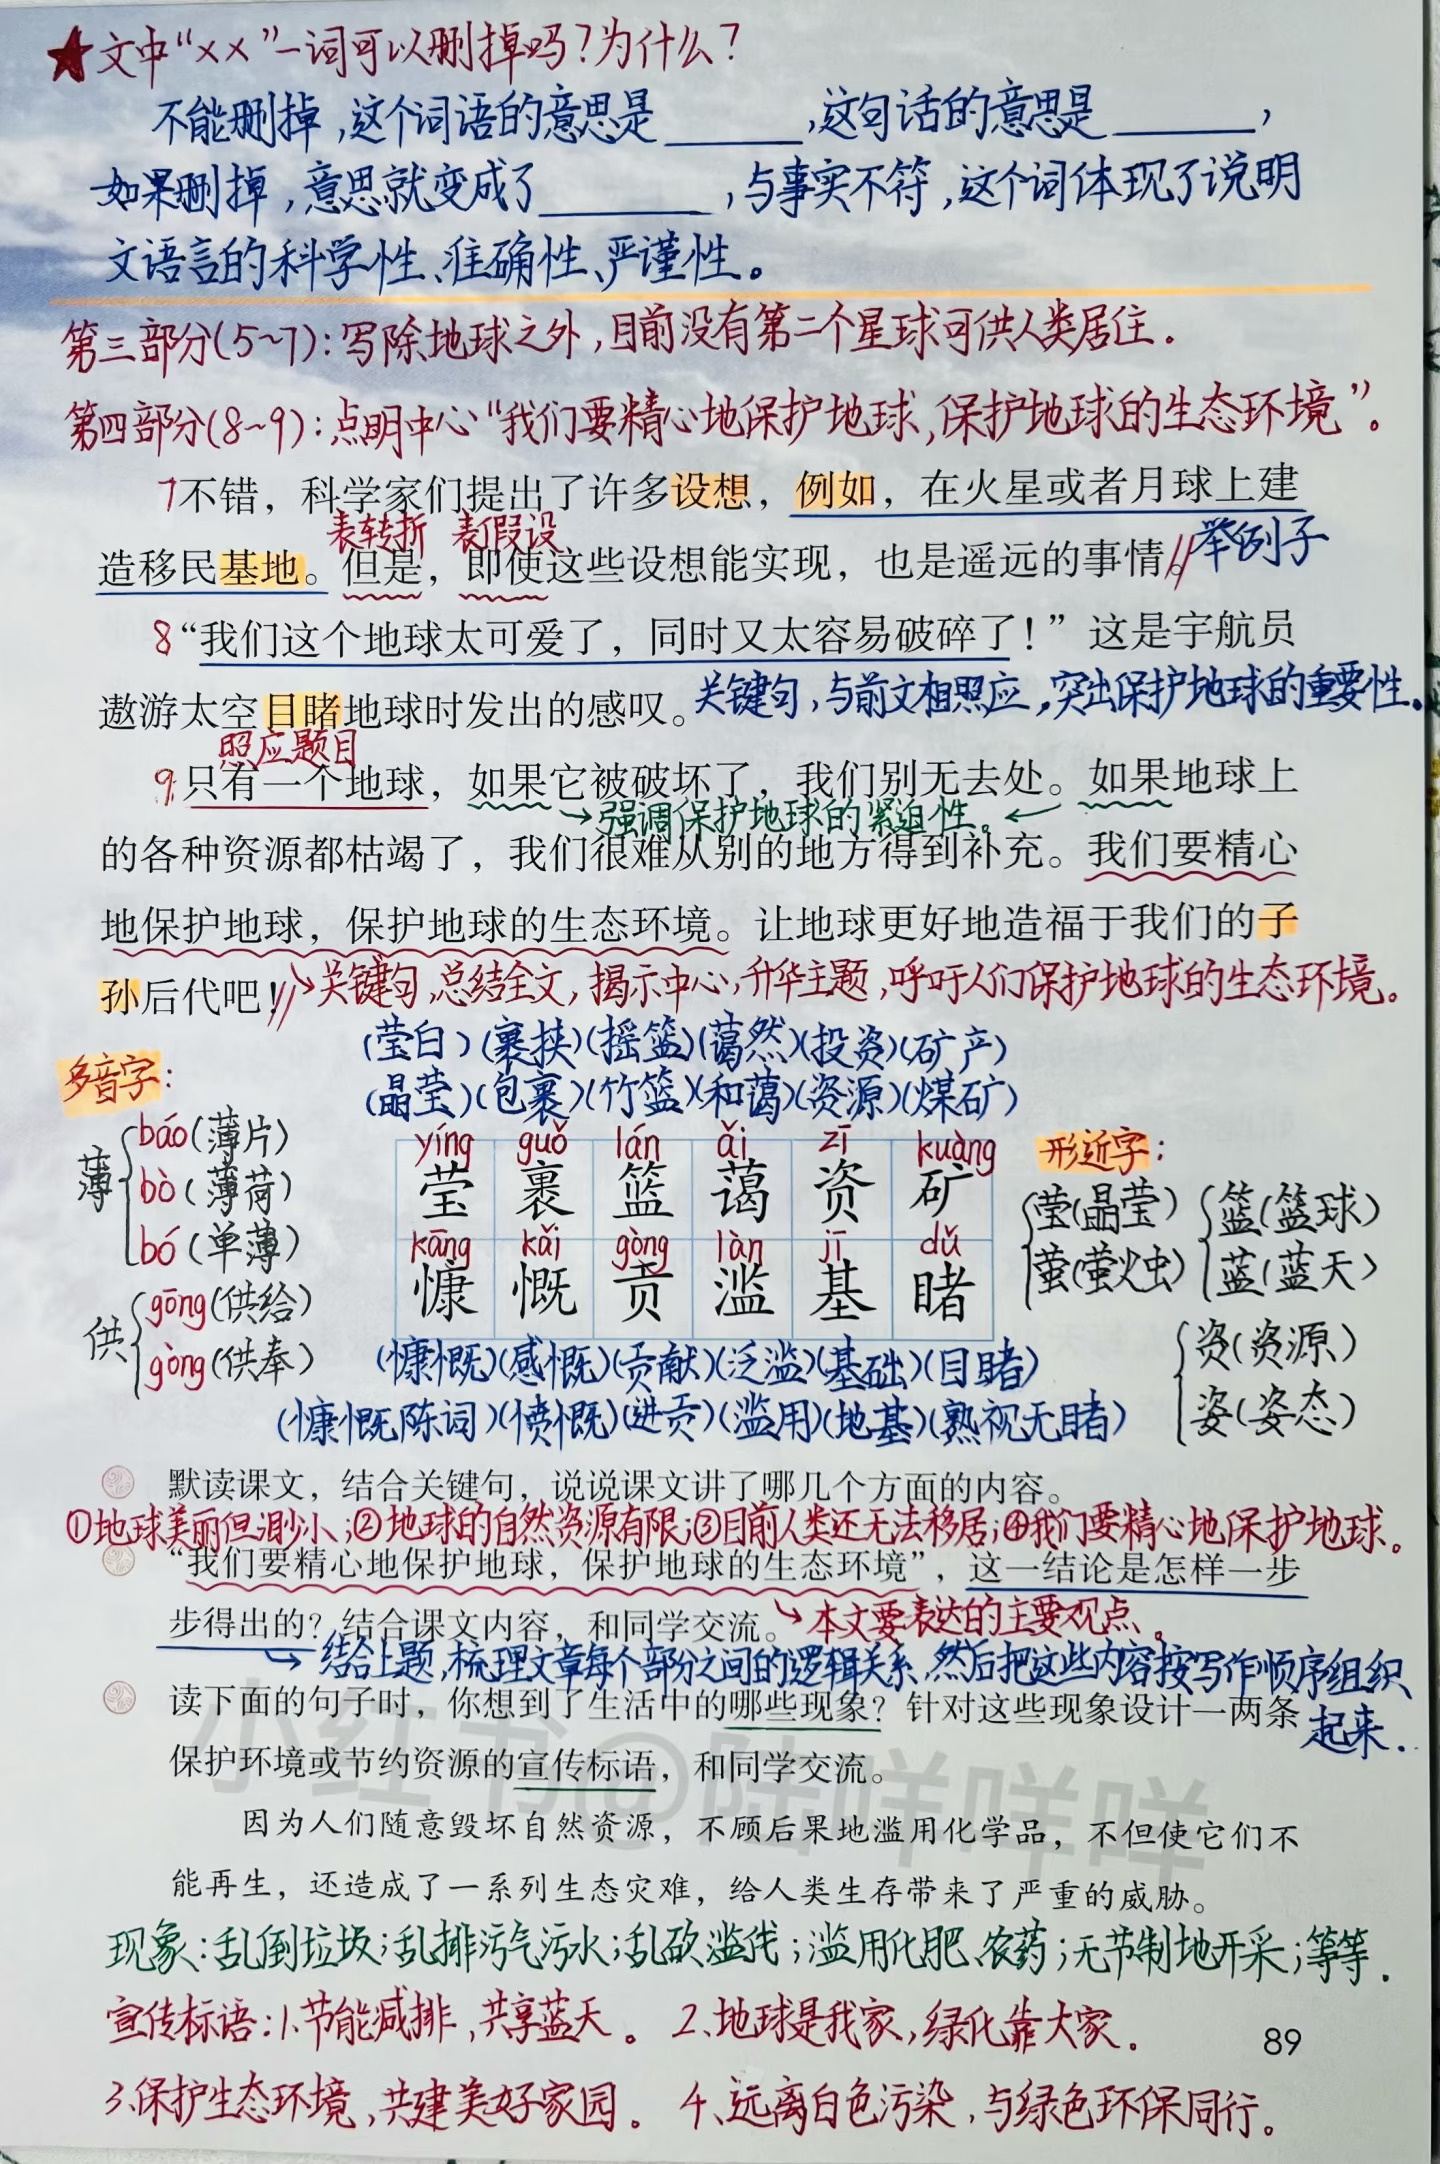 ★文中“××”一词可以删掉吗?为什么?
不能删掉,这个词语的意思是______,这句话的意思是______,
如果删掉,意思就变成了______,与事实不符,这个词体现了说明
文语言的科学性、准确性、严谨性。
第三部分(5~7):写除地球之外,目前没有第二个星球可供人类居住。
第四部分(8~9):点明中心“我们要精心地保护地球,保护地球的生态环境”。
7不错，科学家们提出了许多设想，例如，在火星或者月球上建
表转折 表假设
造移民基地。但是，即使这些设想能实现，也是遥远的事情。//举例子
8“我们这个地球太可爱了，同时又太容易破碎了！”这是宇航员
遨游太空目睹地球时发出的感叹。关键句,与前文相照应,突出保护地球的重要性。
照应题目
9只有一个地球，如果它被破坏了，我们别无去处。如果地球上
→强调保护地球的紧迫性。←
的各种资源都枯竭了，我们很难从别的地方得到补充。我们要精心
地保护地球，保护地球的生态环境。让地球更好地造福于我们的子
孙后代吧！//→关键句,总结全文,揭示中心,升华主题,呼吁人们保护地球的生态环境。
(莹白)(裹挟)(摇篮)(蔼然)(投资)(矿产)
(晶莹)(包裹)(竹篮)(和蔼)(资源)(煤矿)
多音字:
薄 báo(薄片)
bò(薄荷)
bó(单薄)
供 gōng(供给)
gòng(供奉)
yíng guǒ lán ǎi zī kuàng
莹 裹 篮 蔼 资 矿
kāng kǎi gòng làn jī dǔ
慷 慨 贡 滥 基 睹
形近字:
莹(晶莹) 篮(篮球)
萤(萤火虫) 蓝(蓝天)
资(资源)
姿(姿态)
(慷慨)(感慨)(贡献)(泛滥)(基础)(目睹)
(慷慨陈词)(愤慨)(进贡)(滥用)(地基)(熟视无睹)
默读课文，结合关键句，说说课文讲了哪几个方面的内容。
①地球美丽但渺小;②地球的自然资源有限;③目前人类还无法移居;④我们要精心地保护地球。
“我们要精心地保护地球，保护地球的生态环境”，这一结论是怎样一步
步得出的？结合课文内容，和同学交流。→本文要表达的主要观点。
→结合上题,梳理文章每个部分之间的逻辑关系,然后把这些内容按写作顺序组织
起来.
读下面的句子时，你想到了生活中的哪些现象？针对这些现象设计一两条
保护环境或节约资源的宣传标语，和同学交流。
因为人们随意毁坏自然资源，不顾后果地滥用化学品，不但使它们不
能再生，还造成了一系列生态灾难，给人类生存带来了严重的威胁。
现象:乱倒垃圾;乱排污气污水;乱砍滥伐;滥用化肥、农药;无节制地开采;等等.
宣传标语:1.节能减排,共享蓝天。2、地球是我家,绿化靠大家.
89
3.保护生态环境,共建美好家园。4、远离白色污染,与绿色环保同行。
小红书@陆咩咩咩